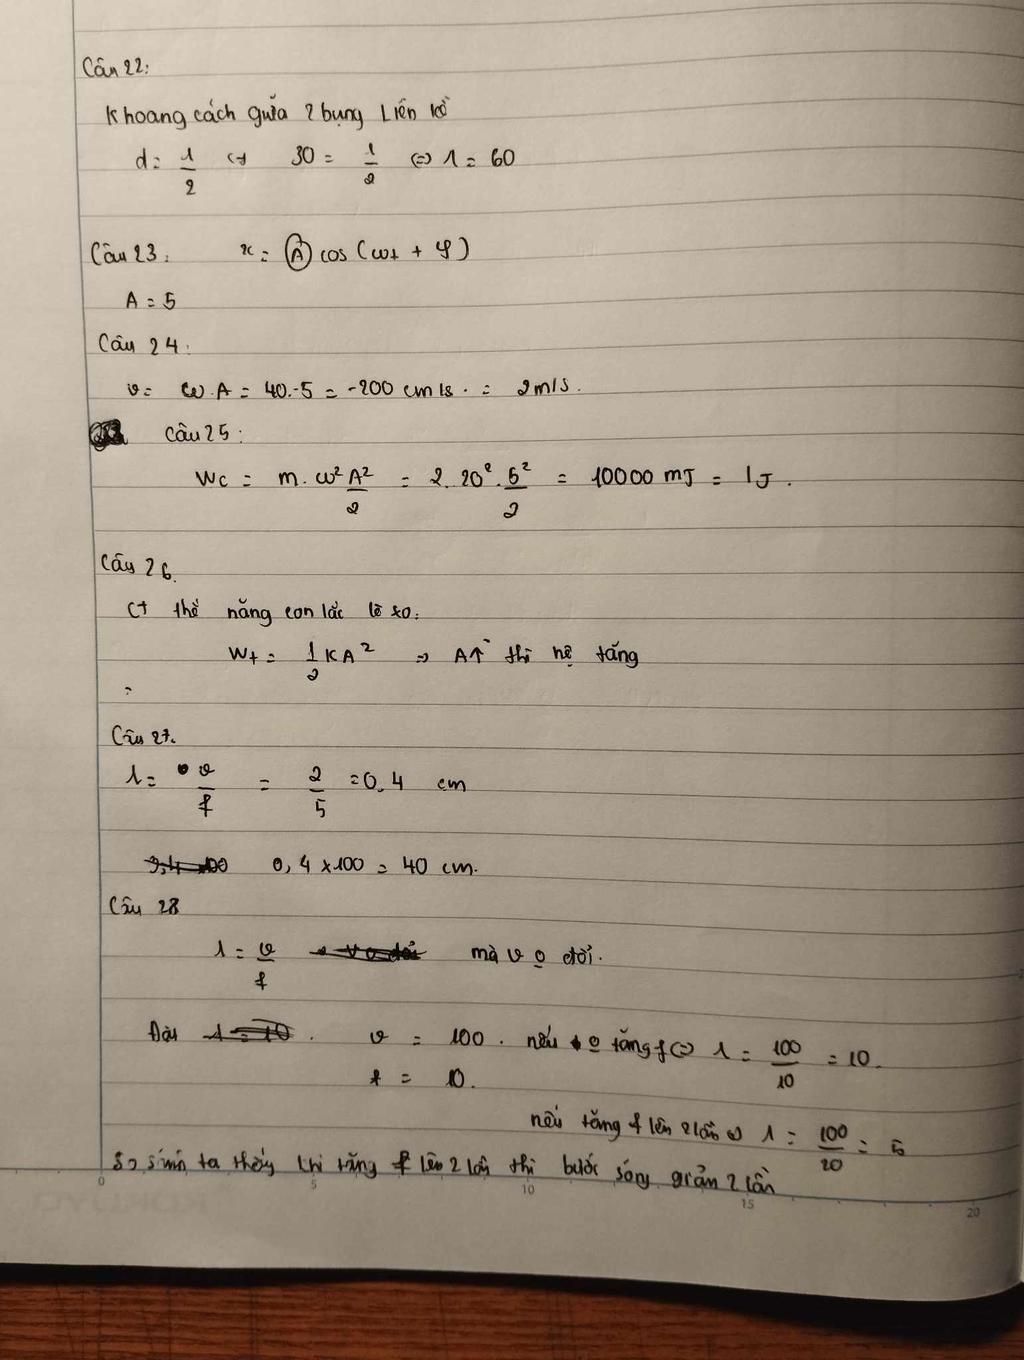 Câu 22:
Khoang cách giữa 2 bụng Liền kề
d = λ/2 <=> 30 = λ/2 <=> λ = 60
Câu 23: x = A cos (ωt + φ)
A = 5
Câu 24:
v = ω.A = 40.-5 = -200 cm/s. = 2m/s.
Câu 25:
Wc = m.ω²A²/2 = 2.20².5²/2 = 10000 mJ = 1J.
Câu 26.
CT thế năng con lắc lò xo:
Wt = 1/2 KA² => A↑ thì hệ tăng
Câu 27.
λ = v/f = 2/5 = 0.4 cm
0,4 x 100 = 40 cm.
Câu 28
λ = v/f mà v o đổi.
Đặt v = 100. nếu o tăng f <=> λ = 100/10 = 10.
f = 10.
nếu tăng f lên 2 lần <=> λ = 100/20 = 5
So sánh ta thấy khi tăng f lên 2 lần thì bước sóng giản 2 lần
0 5 10 15 20